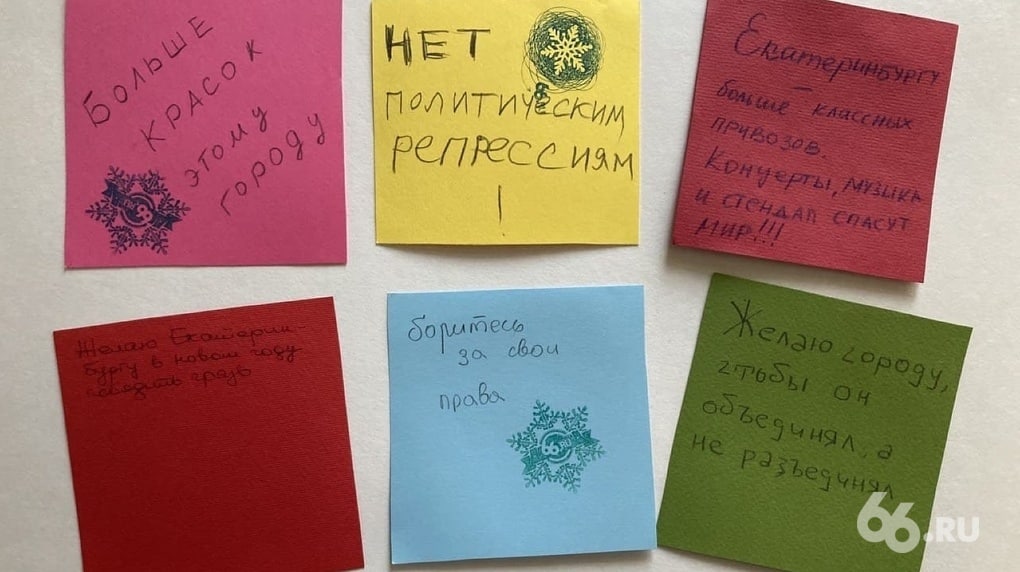 БОЛЬШЕ
КРАСОК
ЭТОМУ
ГОРОДУ
НЕТ
ПОЛИТИЧЕСКИМ
РЕПРЕССИЯМ
!
ЕКАТЕРИНБУРГУ
–
больше классных
привозов.
Концерты, музыка
и стендап спасут
мир!!!
Желаю Екатерин-
бургу в новом году
грязь
боритесь
за свои
права
66.RU
Желаю городу,
чтобы он
объединял, а
не разъединял
66.RU